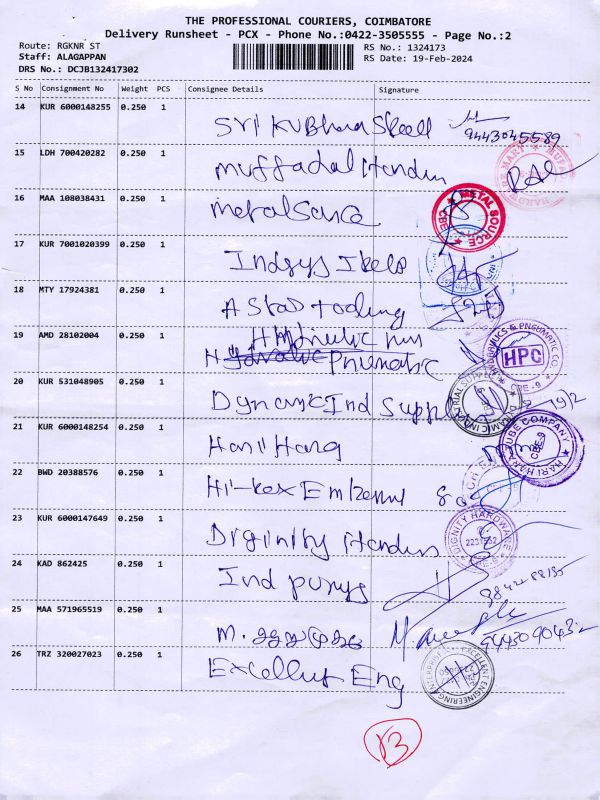 THE PROFESSIONAL COURIERS, COIMBATORE
Delivery Runsheet - PCX - Phone No.:0422-3505555 - Page No.:2
Route: RGKNR ST
RS No.: 1324173
Staff: ALAGAPPAN
RS Date: 19-Feb-2024
DRS No.: DCJB132417302
S No Consignment No Weight PCS Consignee Details Signature
14 KUR 6000148255 0.250 1
Sri KuBhara Steell
9443045589
15 LDH 700420282 0.250 1
Muffadal Hardin
16 MAA 108038431 0.250 1
Metal Source
METAL SOURCE CBE
17 KUR 7001020399 0.250 1
Indsys
18 MTY 17924381 0.250 1
A Star tooling
19 AMD 28102004 0.250 1
Pneumatic
HYDRAULICS & PNEUMATIC CO. HPC CBE-9
20 KUR 531048905 0.250 1
Dynamic Ind Supply
DYNAMIC INDUSTRIAL SUPPLY
21 KUR 6000148254 0.250 1
Hari Harag
HARI HARA TUBE COMPANY CBE-9
22 BWD 20388576 0.250 1
23 KUR 6000147649 0.250 1
Diginity Harden
DIGNITY HARDWARE CBE-9
24 KAD 862425 0.250 1
Ind pumps
25 MAA 571965519 0.250 1
M.
26 TRZ 320027023 0.250 1
Excellent Eng
EXCELLENT ENGINEERING ENTERPRISE
13